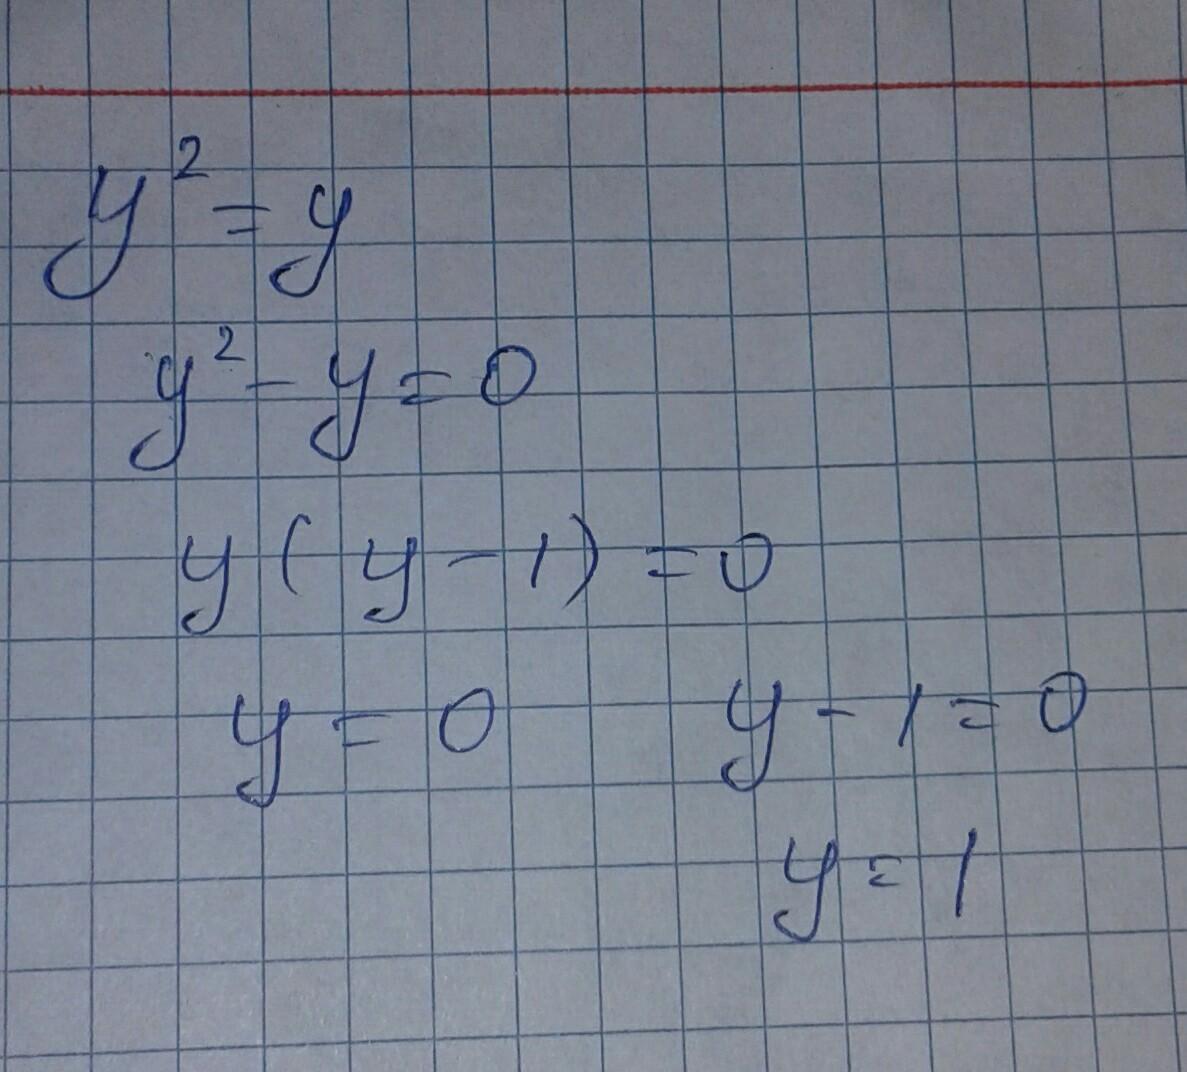 y² = y
y² - y = 0
y ( y - 1 ) = 0
y = 0 y - 1 = 0
y = 1